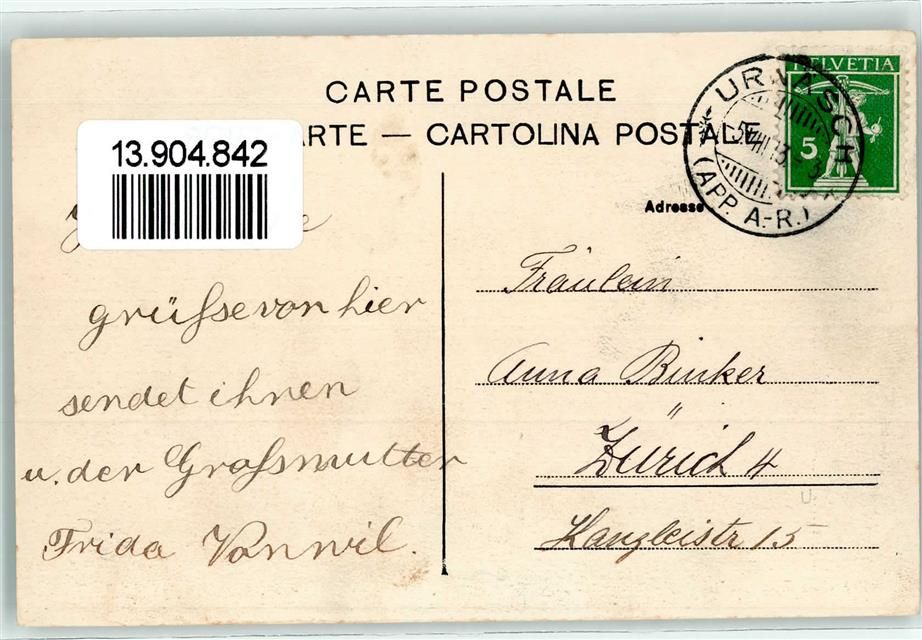 CARTE POSTALE
ARTE — CARTOLINA POSTALE
13.904.842
HELVETIA
5
URNÄSCH
(APP. A.-R.)
Adresse
grüsse von hier
sendet ihnen
u. der Grossmutter
Frida Vonwil.
Fräulein
Anna Binker
Zürich 4
Kanzleistr 15